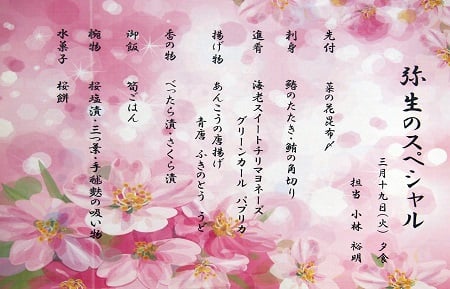 弥生のスペシャル
三月十九日(火) 夕食
担当 小林 裕明
先付 菜の花昆布〆
刺身 鯵のたたき・鮪の角切り
進肴 海老スイートチリマヨネーズ
グリーンカール パプリカ
揚げ物 あんこうの唐揚げ
青唐 ふきのとう うど
香の物 べったら漬・さくら漬
御飯 筍ごはん
椀物 桜塩漬・三つ葉・手毬麩の吸い物
水菓子 桜餅